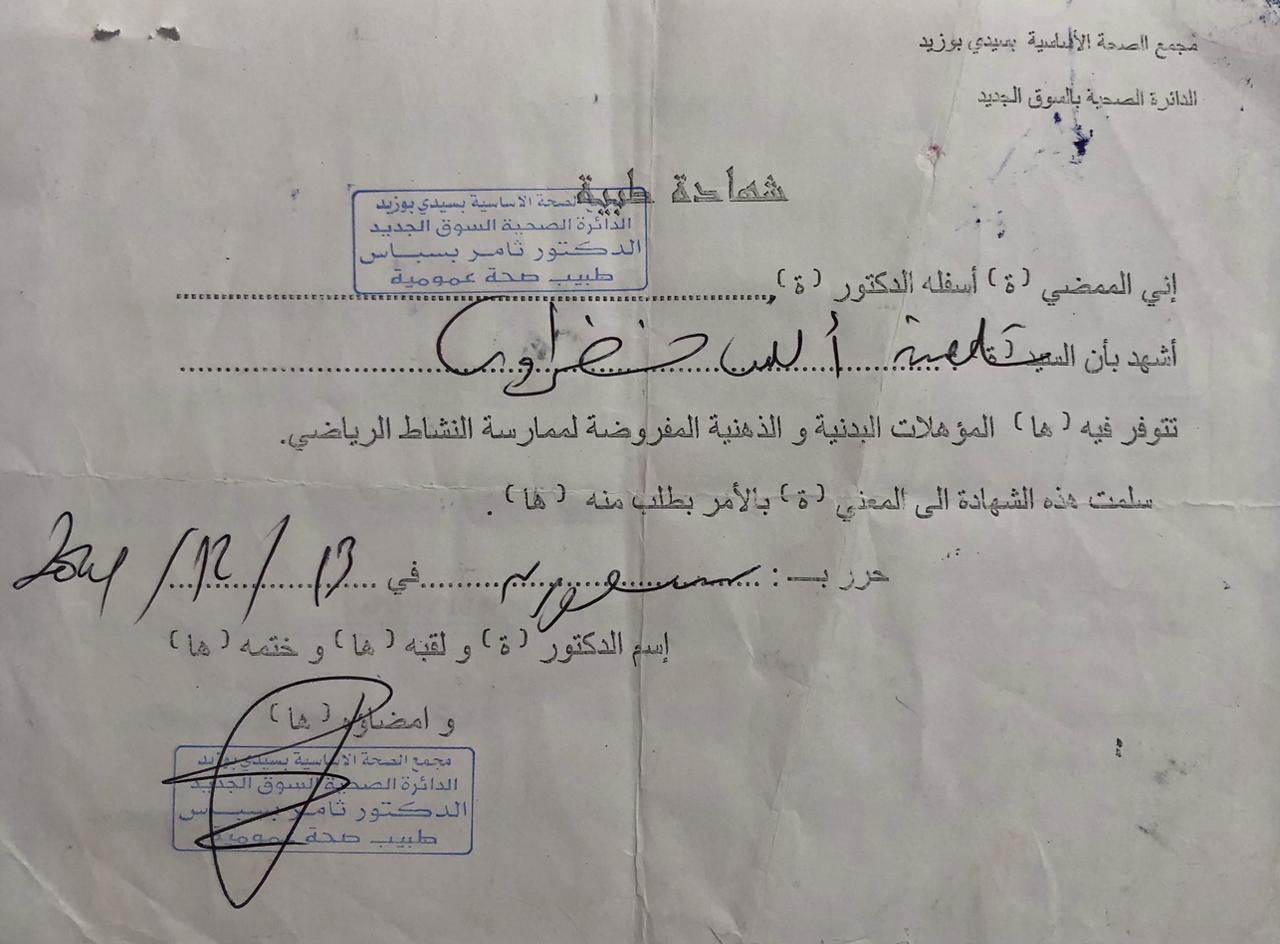 مجمع الصحة الأساسية بسيدي بوزيد
الدائرة الصحية بالسوق الجديد
شهادة طبية
الصحة الاساسية بسيدي بوزيد
الدائرة الصحية السوق الجديد
الدكتور ثامر بسباس
طبيب صحة عمومية
إني الممضي (ة) أسفله الدكتور (ة)
أشهد بأن السيد (ة) خضراوي
تتوفر فيه (ها) المؤهلات البدنية و الذهنية المفروضة لممارسة النشاط الرياضي.
سلمت هذه الشهادة الى المعني (ة) بالأمر بطلب منه (ها).
حرر بـ : في 13 / 12 / 2024
إسم الدكتور (ة) و لقبه (ها) و ختمه (ها)
و امضاؤه (ها)
مجمع الصحة الاساسية بسيدي بوزيد
الدائرة الصحية السوق الجديد
الدكتور ثامر بسباس
طبيب صحة عمومية